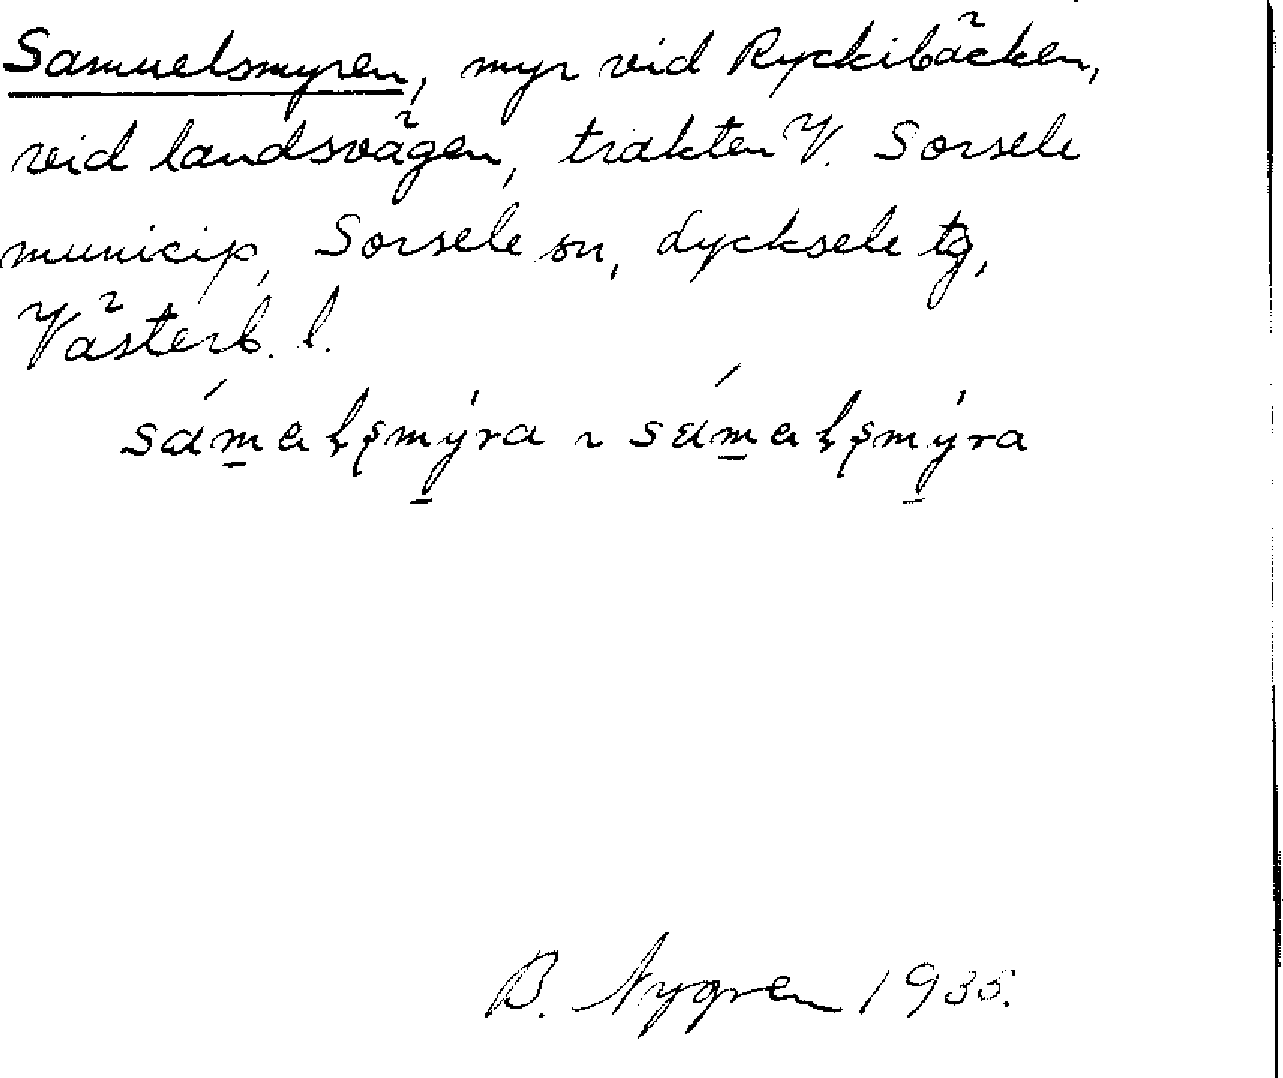 Samuelsmyren, myr vid Ryckibäcken,
vid landsvägen, trakten V. Sorsele
municip, Sorsele sn, Lycksele tg,
Västerb. l.
B. Nygren 1935.